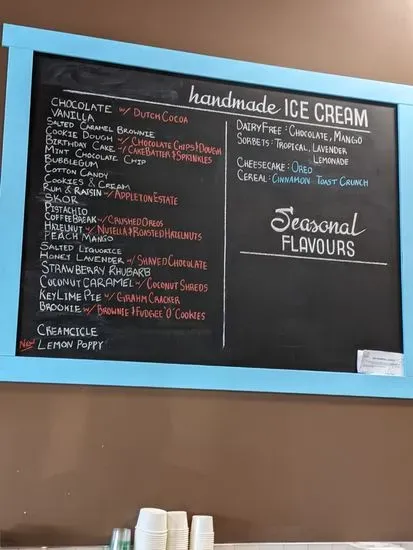 handmade ICE CREAM
CHOCOLATE w/ DUTCH COCOA
VANILLA
SALTED CARAMEL BROWNIE
COOKIE DOUGH w/ CHOCOLATE CHIPS & DOUGH
BIRTHDAY CAKE w/ CAKE BATTER & SPRINKLES
MINT CHOCOLATE CHIP
BUBBLEGUM
COTTON CANDY
COOKIES & CREAM
RUM & RAISIN w/ APPLETON ESTATE
SKOR
PISTACHIO
COFFEE BREAK w/ CRUSHED OREOS
HAZELNUT w/ NUTELLA & ROASTED HAZELNUTS
PEACH MANGO
SALTED LIQUORICE
HONEY LAVENDER w/ SHAVED CHOCOLATE
STRAWBERRY RHUBARB
COCONUT CARAMEL w/ COCONUT SHREDS
KEY LIME PIE w/ GRAHM CRACKER
BROOKIE w/ BROWNIE & FUDGEE 'O' COOKIES
CREAMCICLE
NEW LEMON POPPY
DAIRY FREE: CHOCOLATE, MANGO
SORBETS: TROPICAL, LAVENDER
LEMONADE
CHEESECAKE: OREO
CEREAL: CINNAMON TOAST CRUNCH
Seasonal
FLAVOURS